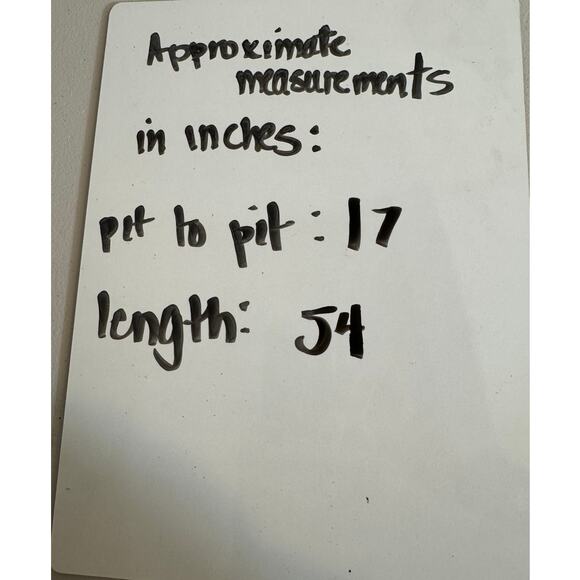 Approximate
measurements
in inches:
pit to pit: 17
length: 54